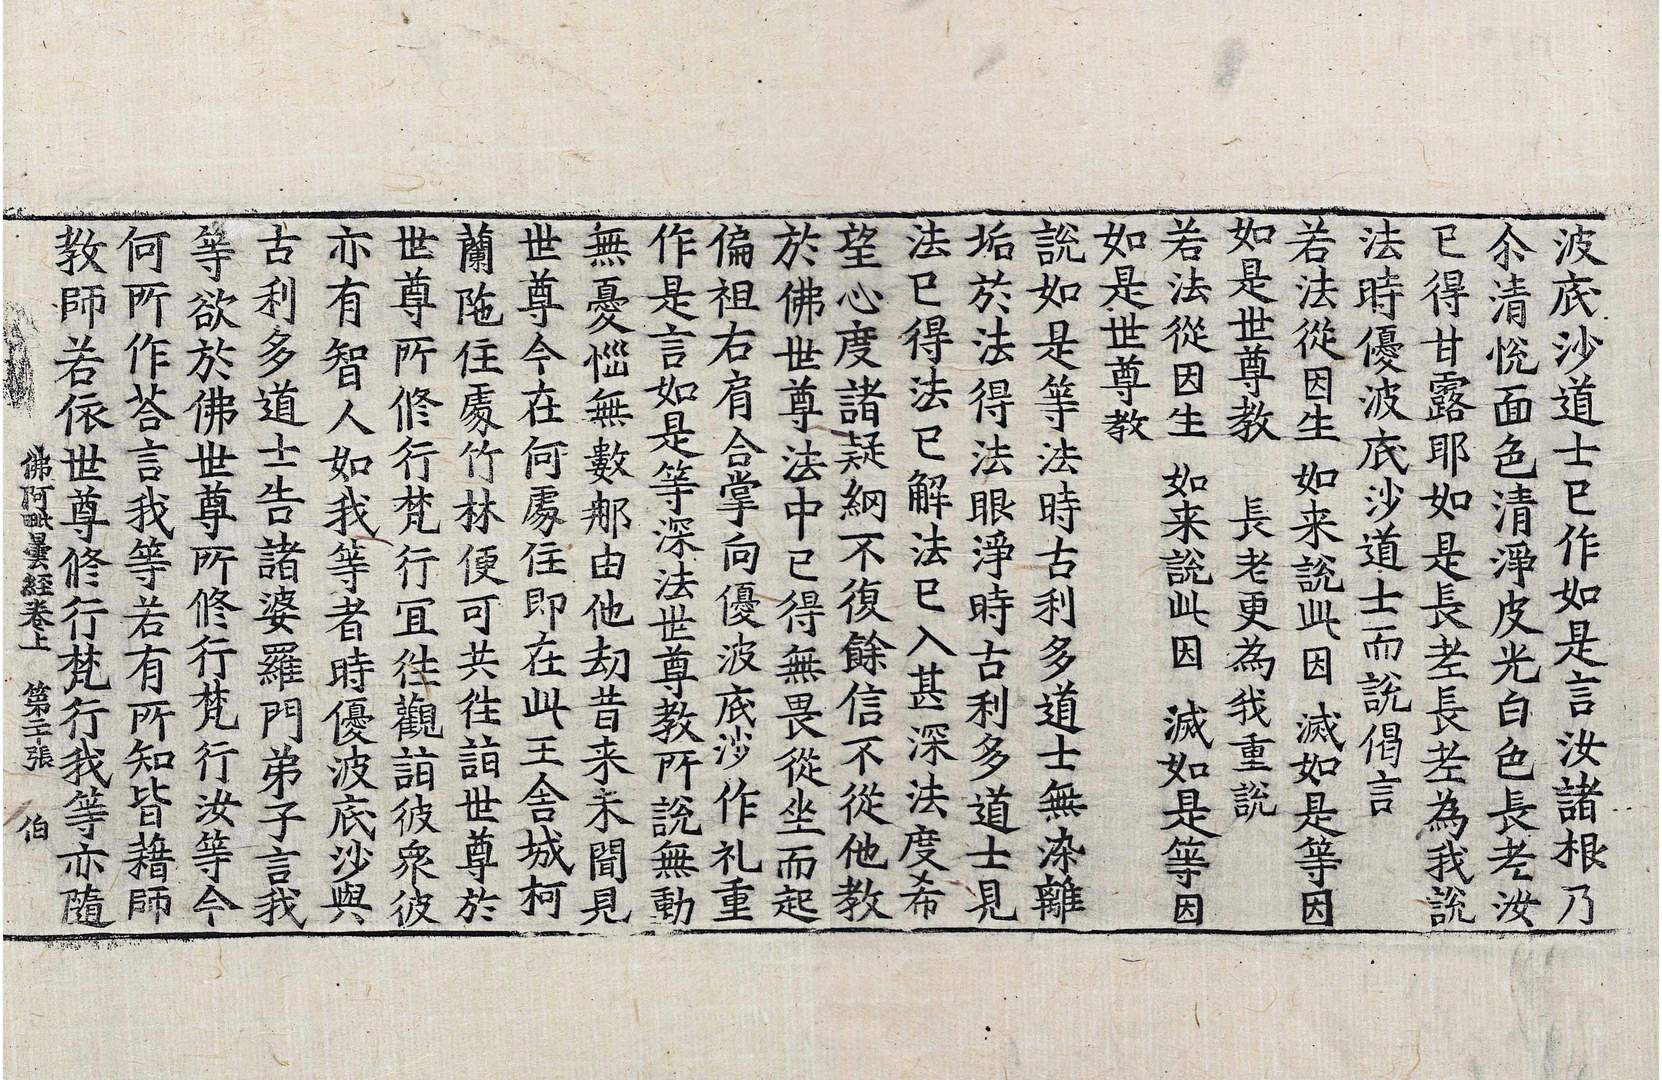 波底沙道士已作如是言汝諸根乃
尒清恱面色清淨皮光白色長老汝
已得甘露耶如是長老長老為我說
法時優波底沙道士而說偈言
若法從因生 如来說此因 滅如是等因
如是世尊教 長老更為我重說
若法從因生 如来說此因 滅如是等因
如是世尊教
說如是等法時古利多道士無染離
垢於法得法眼淨時古利多道士見
法已得法已解法已入甚深法度希
望心度諸疑網不復餘信不從他教
於佛世尊法中已得無畏從坐而起
偏袒右肩合掌向優波底沙作礼重
作是言如是等深法世尊教所說無動
無憂惱無數那由他劫昔来未聞見
世尊今在何處住即在此王舍城柯
蘭陁住處竹林便可共往詣世尊於
世尊所修行梵行冝往觀詣彼衆彼
亦有智人如我等者時優波底沙與
古利多道士告諸婆羅門弟子言我
等欲於佛世尊所修行梵行汝等今
何所作荅言我等若有所知皆藉師
教師若依世尊修行梵行我等亦隨
佛阿毗曇經卷上 第二張 伯